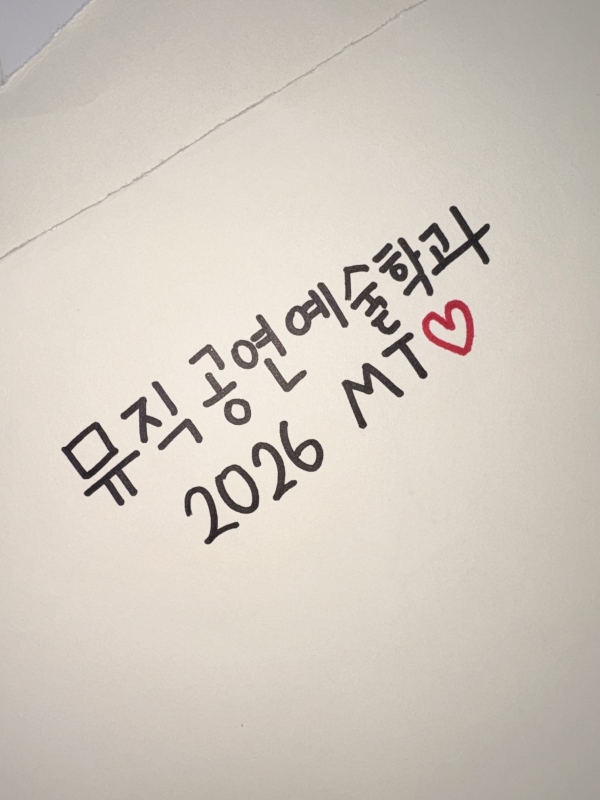 뮤직공연예술학과
2026 MT♡